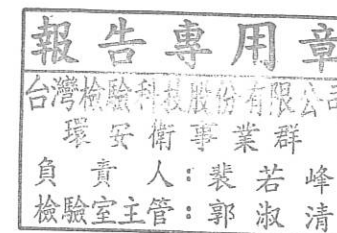 報告專用章
台灣檢驗科技股份有限公司
環安衛事業群
負責人：裴若峰
檢驗室主管：郭淑清